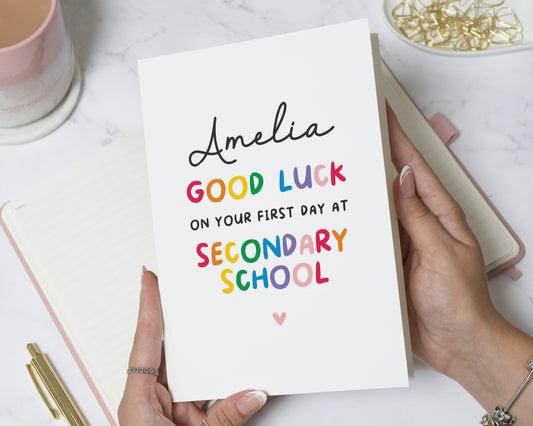 Amelia
GOOD LUCK
ON YOUR FIRST DAY AT
SECONDARY
SCHOOL